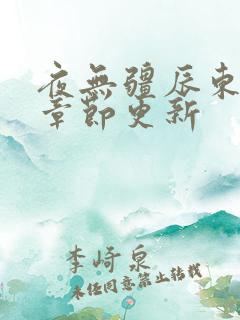 夜無疆辰東
章節更新
李崎泉
未经同意禁止转载